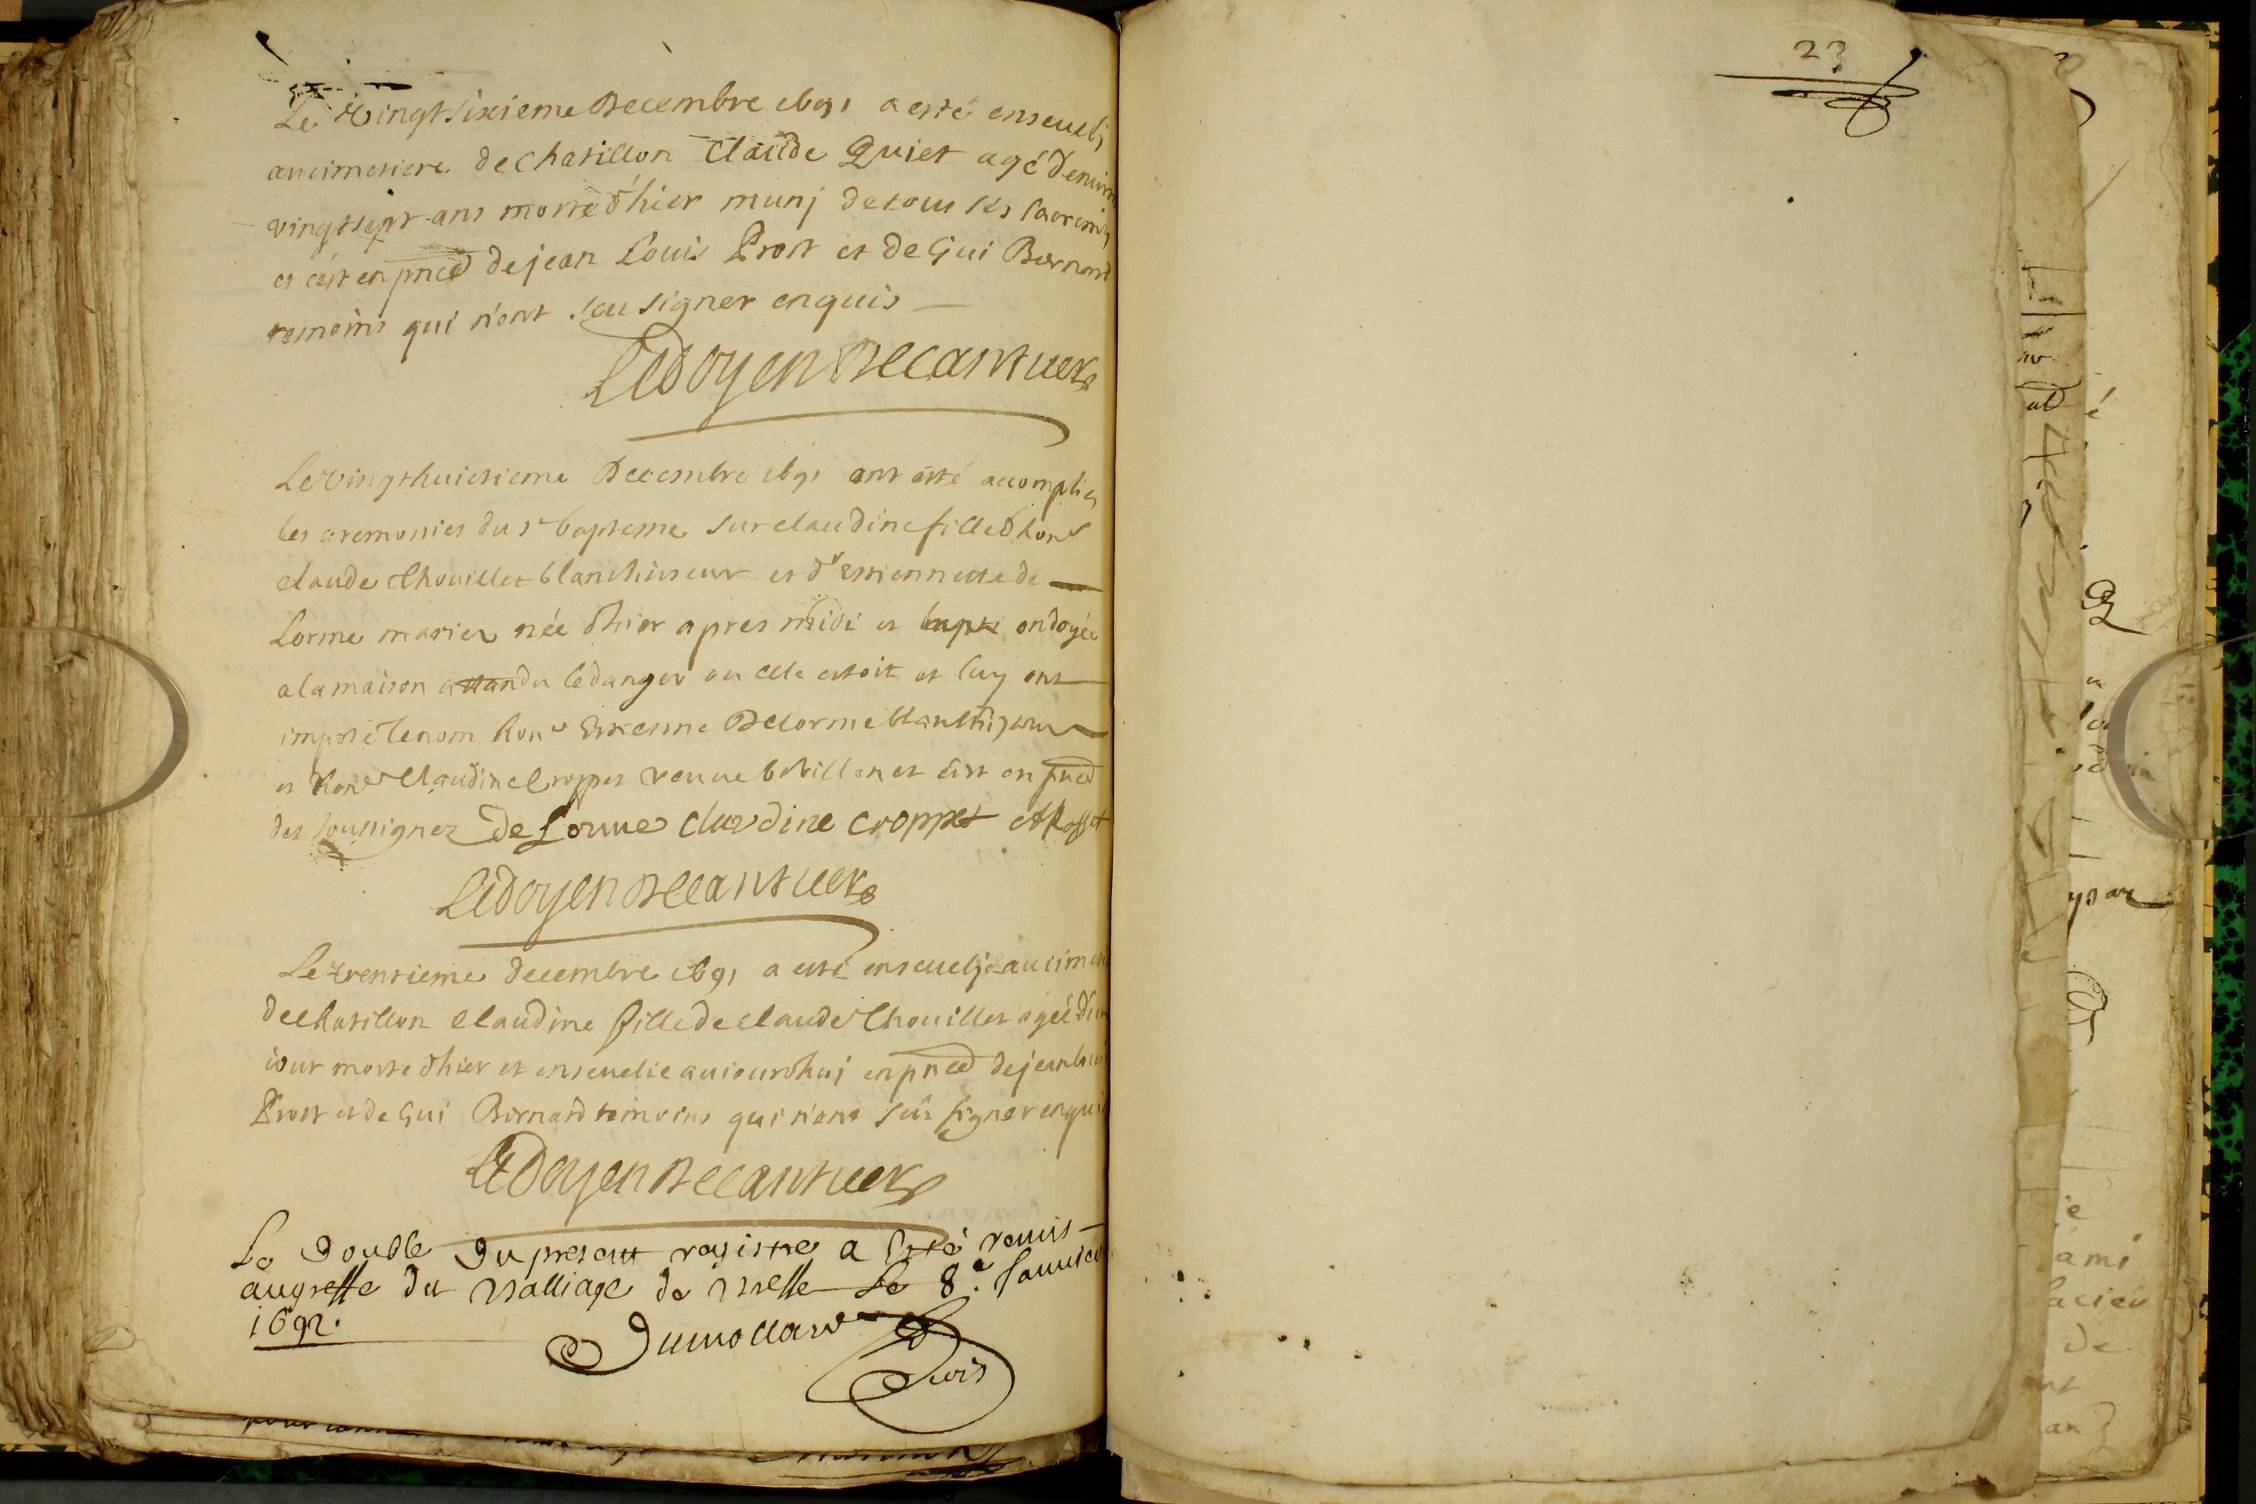 Le vingt sixieme Decembre 1691 a esté enseueli
au cimetiere de Chatillon Claude Quiet agé d'enuiron
vingt sept ans morte d'hier munj de tous les sacremts
et c'est en pnce de jean Louis Prost et de Gui Bernard
temoins qui n'ont sçu signer enquis
Ledoyen Decantuer
Le vingt huictieme Decembre 1691 ont esté accomplies
les ceremonies du st baptesme sur claudine fille d'hone
claude Chouillet blanchisseur et de estiennette de
Lorme mariez née d'hier apres midi et ondoyée
a la maison attandu le danger ou elle estoit et luy ont
imposé le nom hone Estienne Delorme blanchisseur
et hone Claudine Croppet veuue et c'est en pnce
des soussignez De Lorme claudine croppet
Ledoyen Decantuer
Le trentieme decembre 1691 a esté enseuelie au cimet
de Chatillon Claudine fille de claude Chouillet agée d'un
iour morte d'hier et enseuelie auiourdhuj en pnce de jean Louis
Prost et de Gui Bernard temoins qui n'ont sçu signer enquis
Ledoyen Decantuer
Le Double Du present registre a esté remis
au greffe du Balliage de le 8.e Januier
1692.
Dumollard
23